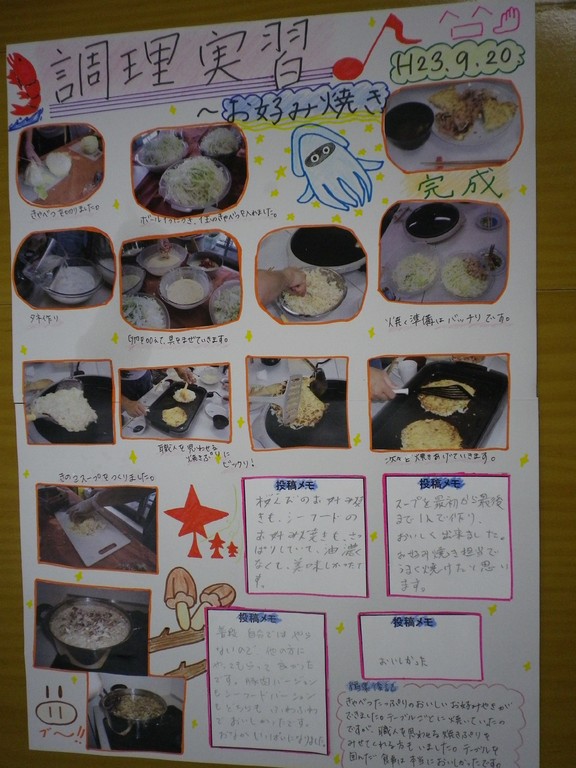 調理実習
H23.9.20
～お好み焼き
完成
きゃべつを切りました。
タネ作り
焼く準備はバッチリです。
職人を思わせる
焼きぷりに
ビックリ!
次々と焼きあげていきます。
きのこスープをつくりました。
投稿メモ
お好み焼きも、さっ
ぱりしていて、油濃
なくも、美味しかったで
す。
投稿メモ
スープを最初から最後
まで1人で作り、
おいしく出来ました。
お好み焼き担当で
うまく焼けたと思い
ます。
投稿メモ
普段自分ではやら
ないので
です。豚肉バージョン
もシーフードバージョン
もとってもふわふわ
でおいしかったです。
おなかもいっぱいになりました。
投稿メモ
おいしかった
編集後記
きゃべつたっぷりのおいしいお好みやきが
できました。テーブルごとに焼いていたの
ですが、職人を思わせる焼きぷりを
みせてくれる方もいました。テーブルを
囲んだ食事は本当においしかったです。
ブ～!!